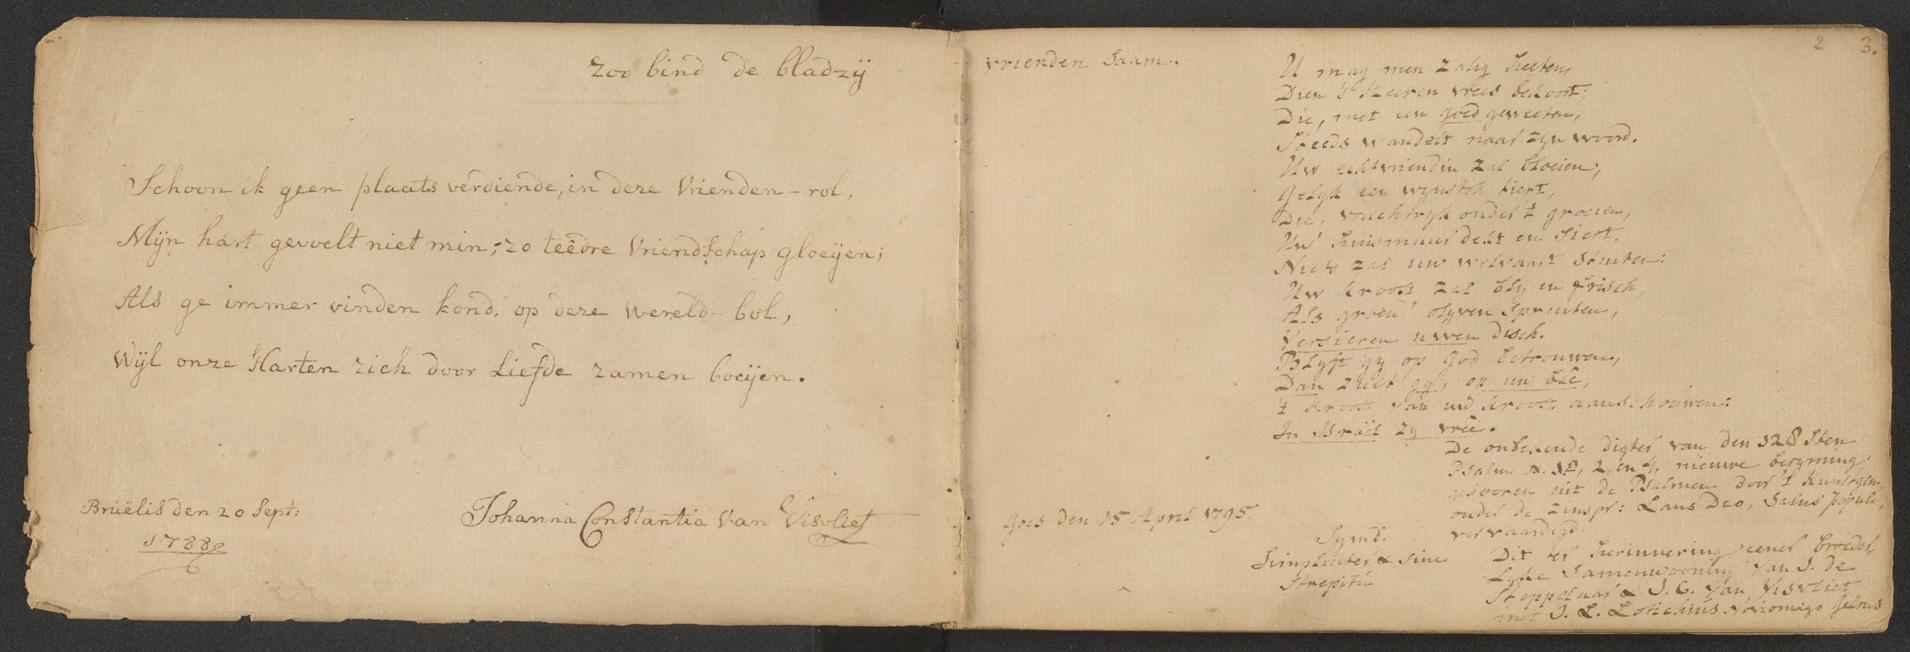 Zoo bind de bladzij
Schoon ik geen plaats verdiende, in deze Vrienden-rol,
Mijn hart gevoelt niet min, zo teêdre Vriendschap gloeijen;
Als ge immer vinden kond, op deze Wereld-bol,
Wijl onze Harten zich door Liefde zamen boeijen.
Bruëlis den 20 Sept:
1788
Johanna Constantia Van Visvliet
vrienden saam.
2 3.
U mag men zalig heeten,
Dien 's Heeren vrees bekoort;
Die, met een goed geweeten,
Steeds wandelt naar zyn woord.
Uw echtvriendin zal bloeien,
Gelyk een wynstok tiert,
Die, vruchtryk onder 't groeien,
Uw' huismuur dekt en siert.
Niets zal uw welvaart stuiten:
Uw kroost zal bly en frisch,
Als groen' olyven spruiten,
Versieren uwen disch.
Blyft gy op God betrouwen,
Dan zult gy, op uw bee,
't Kroost van uw kroost aanschouwen:
In Israël zy vree.
De onbekende digter van den 128sten
Psalm 1, 2, en 4, nieuwe berymning
gekooren uit de Psalmen door 't Kunstgen.
onder de zinspr: Laus Deo, Salus populo,
vervaardigd.
Goes den 15 April 1795
Symb.
Simpliciter & sine
strepitu
Dit ter herinnering eener broeder-
lyke samenwooning van J. de
Stoppelaar & J. C. Van Visvliet
met J. L. Lotichius. Noviomago Gelrus